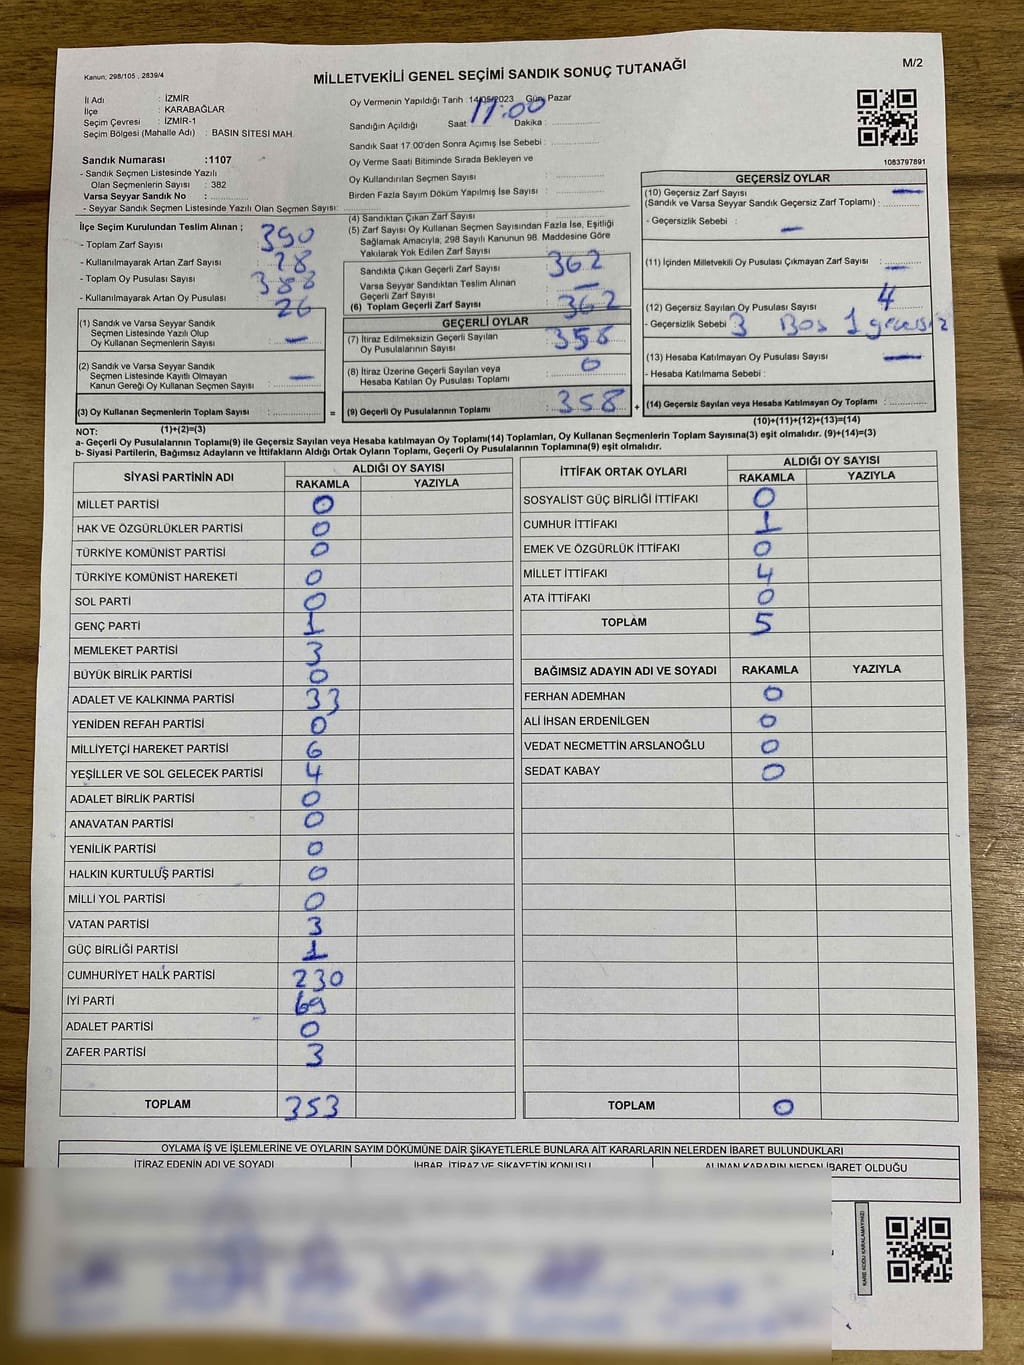 Kanun; 298/105 , 2839/4
MİLLETVEKİLİ GENEL SEÇİMİ SANDIK SONUÇ TUTANAĞI
M/2
İl Adı : İZMİR
İlçe : KARABAĞLAR
Seçim Çevresi : İZMİR-1
Seçim Bölgesi (Mahalle Adı) : BASIN SİTESİ MAH.
Sandık Numarası :1107
- Sandık Seçmen Listesinde Yazılı
Olan Seçmenlerin Sayısı : 382
Varsa Seyyar Sandık No :
- Seyyar Sandık Seçmen Listesinde Yazılı Olan Seçmen Sayısı:
Oy Vermenin Yapıldığı Tarih :14/05/2023 Gün: Pazar
Sandığın Açıldığı Saat: 17:00 Dakika :
Sandık Saat 17.00'den Sonra Açımış İse Sebebi :
Oy Verme Saati Bitiminde Sırada Bekleyen ve
Oy Kullandırılan Seçmen Sayısı :
Birden Fazla Sayım Döküm Yapılmış İse Sayısı :
1083797891
İlçe Seçim Kurulundan Teslim Alınan ;
- Toplam Zarf Sayısı : 390
- Kullanılmayarak Artan Zarf Sayısı : 28
- Toplam Oy Pusulası Sayısı : 388
- Kullanılmayarak Artan Oy Pusulası : 26
(1) Sandık ve Varsa Seyyar Sandık
Seçmen Listesinde Yazılı Olup
Oy Kullanan Seçmenlerin Sayısı : —
(2) Sandık ve Varsa Seyyar Sandık
Seçmen Listesinde Kayıtlı Olmayan
Kanun Gereği Oy Kullanan Seçmen Sayısı : —
(3) Oy Kullanan Seçmenlerin Toplam Sayısı :
(1)+(2)=(3)
(4) Sandıktan Çıkan Zarf Sayısı :
(5) Zarf Sayısı Oy Kullanan Seçmen Sayısından Fazla İse, Eşitliği
Sağlamak Amacıyla, 298 Sayılı Kanunun 98. Maddesine Göre
Yakılarak Yok Edilen Zarf Sayısı :
Sandıkta Çıkan Geçerli Zarf Sayısı : 362
Varsa Seyyar Sandıktan Teslim Alınan
Geçerli Zarf Sayısı : —
(6) Toplam Geçerli Zarf Sayısı : 362
GEÇERLİ OYLAR
(7) İtiraz Edilmeksizin Geçerli Sayılan
Oy Pusulalarının Sayısı : 358
(8) İtiraz Üzerine Geçerli Sayılan veya
Hesaba Katılan Oy Pusulası Toplamı : 0
= (9) Geçerli Oy Pusulalarının Toplamı : 358 +
GEÇERSİZ OYLAR
(10) Geçersiz Zarf Sayısı —
(Sandık ve Varsa Seyyar Sandık Geçersiz Zarf Toplamı) :
- Geçersizlik Sebebi : —
(11) İçinden Milletvekili Oy Pusulası Çıkmayan Zarf Sayısı : —
(12) Geçersiz Sayılan Oy Pusulası Sayısı : 4
- Geçersizlik Sebebi : 3 Boş 1 geçersiz
(13) Hesaba Katılmayan Oy Pusulası Sayısı : —
- Hesaba Katılmama Sebebi :
(14) Geçersiz Sayılan veya Hesaba Katılmayan Oy Toplamı :
(10)+(11)+(12)+(13)=(14)
NOT:
a- Geçerli Oy Pusulalarının Toplamı(9) ile Geçersiz Sayılan veya Hesaba katılmayan Oy Toplamı(14) Toplamları, Oy Kullanan Seçmenlerin Toplam Sayısına(3) eşit olmalıdır. (9)+(14)=(3)
b- Siyasi Partilerin, Bağımsız Adayların ve İttifakların Aldığı Ortak Oyların Toplamı, Geçerli Oy Pusulalarının Toplamına(9) eşit olmalıdır.
SİYASİ PARTİNİN ADI ALDIĞI OY SAYISI
RAKAMLA YAZIYLA
MİLLET PARTİSİ 0
HAK VE ÖZGÜRLÜKLER PARTİSİ 0
TÜRKİYE KOMÜNİST PARTİSİ 0
TÜRKİYE KOMÜNİST HAREKETİ 0
SOL PARTİ 0
GENÇ PARTİ 1
MEMLEKET PARTİSİ 3
BÜYÜK BİRLİK PARTİSİ 0
ADALET VE KALKINMA PARTİSİ 33
YENİDEN REFAH PARTİSİ 0
MİLLİYETÇİ HAREKET PARTİSİ 6
YEŞİLLER VE SOL GELECEK PARTİSİ 4
ADALET BİRLİK PARTİSİ 0
ANAVATAN PARTİSİ 0
YENİLİK PARTİSİ 0
HALKIN KURTULUŞ PARTİSİ 0
MİLLİ YOL PARTİSİ 0
VATAN PARTİSİ 3
GÜÇ BİRLİĞİ PARTİSİ 1
CUMHURİYET HALK PARTİSİ 230
İYİ PARTİ 69
ADALET PARTİSİ 0
ZAFER PARTİSİ 3
TOPLAM 353
İTTİFAK ORTAK OYLARI ALDIĞI OY SAYISI
RAKAMLA YAZIYLA
SOSYALİST GÜÇ BİRLİĞİ İTTİFAKI 0
CUMHUR İTTİFAKI 1
EMEK VE ÖZGÜRLÜK İTTİFAKI 0
MİLLET İTTİFAKI 4
ATA İTTİFAKI 0
TOPLAM 5
BAĞIMSIZ ADAYIN ADI VE SOYADI RAKAMLA YAZIYLA
FERHAN ADEMHAN 0
ALİ İHSAN ERDENİLGEN 0
VEDAT NECMETTİN ARSLANOĞLU 0
SEDAT KABAY 0
TOPLAM 0
OYLAMA İŞ VE İŞLEMLERİNE VE OYLARIN SAYIM DÖKÜMÜNE DAİR ŞİKAYETLERLE BUNLARA AİT KARARLARIN NELERDEN İBARET BULUNDUKLARI
İTİRAZ EDENİN ADI VE SOYADI İHBAR, İTİRAZ VE ŞİKAYETİN KONUSU ALINAN KARARIN NEDEN İBARET OLDUĞU
KARE KODU KARALAMAYINIZ!